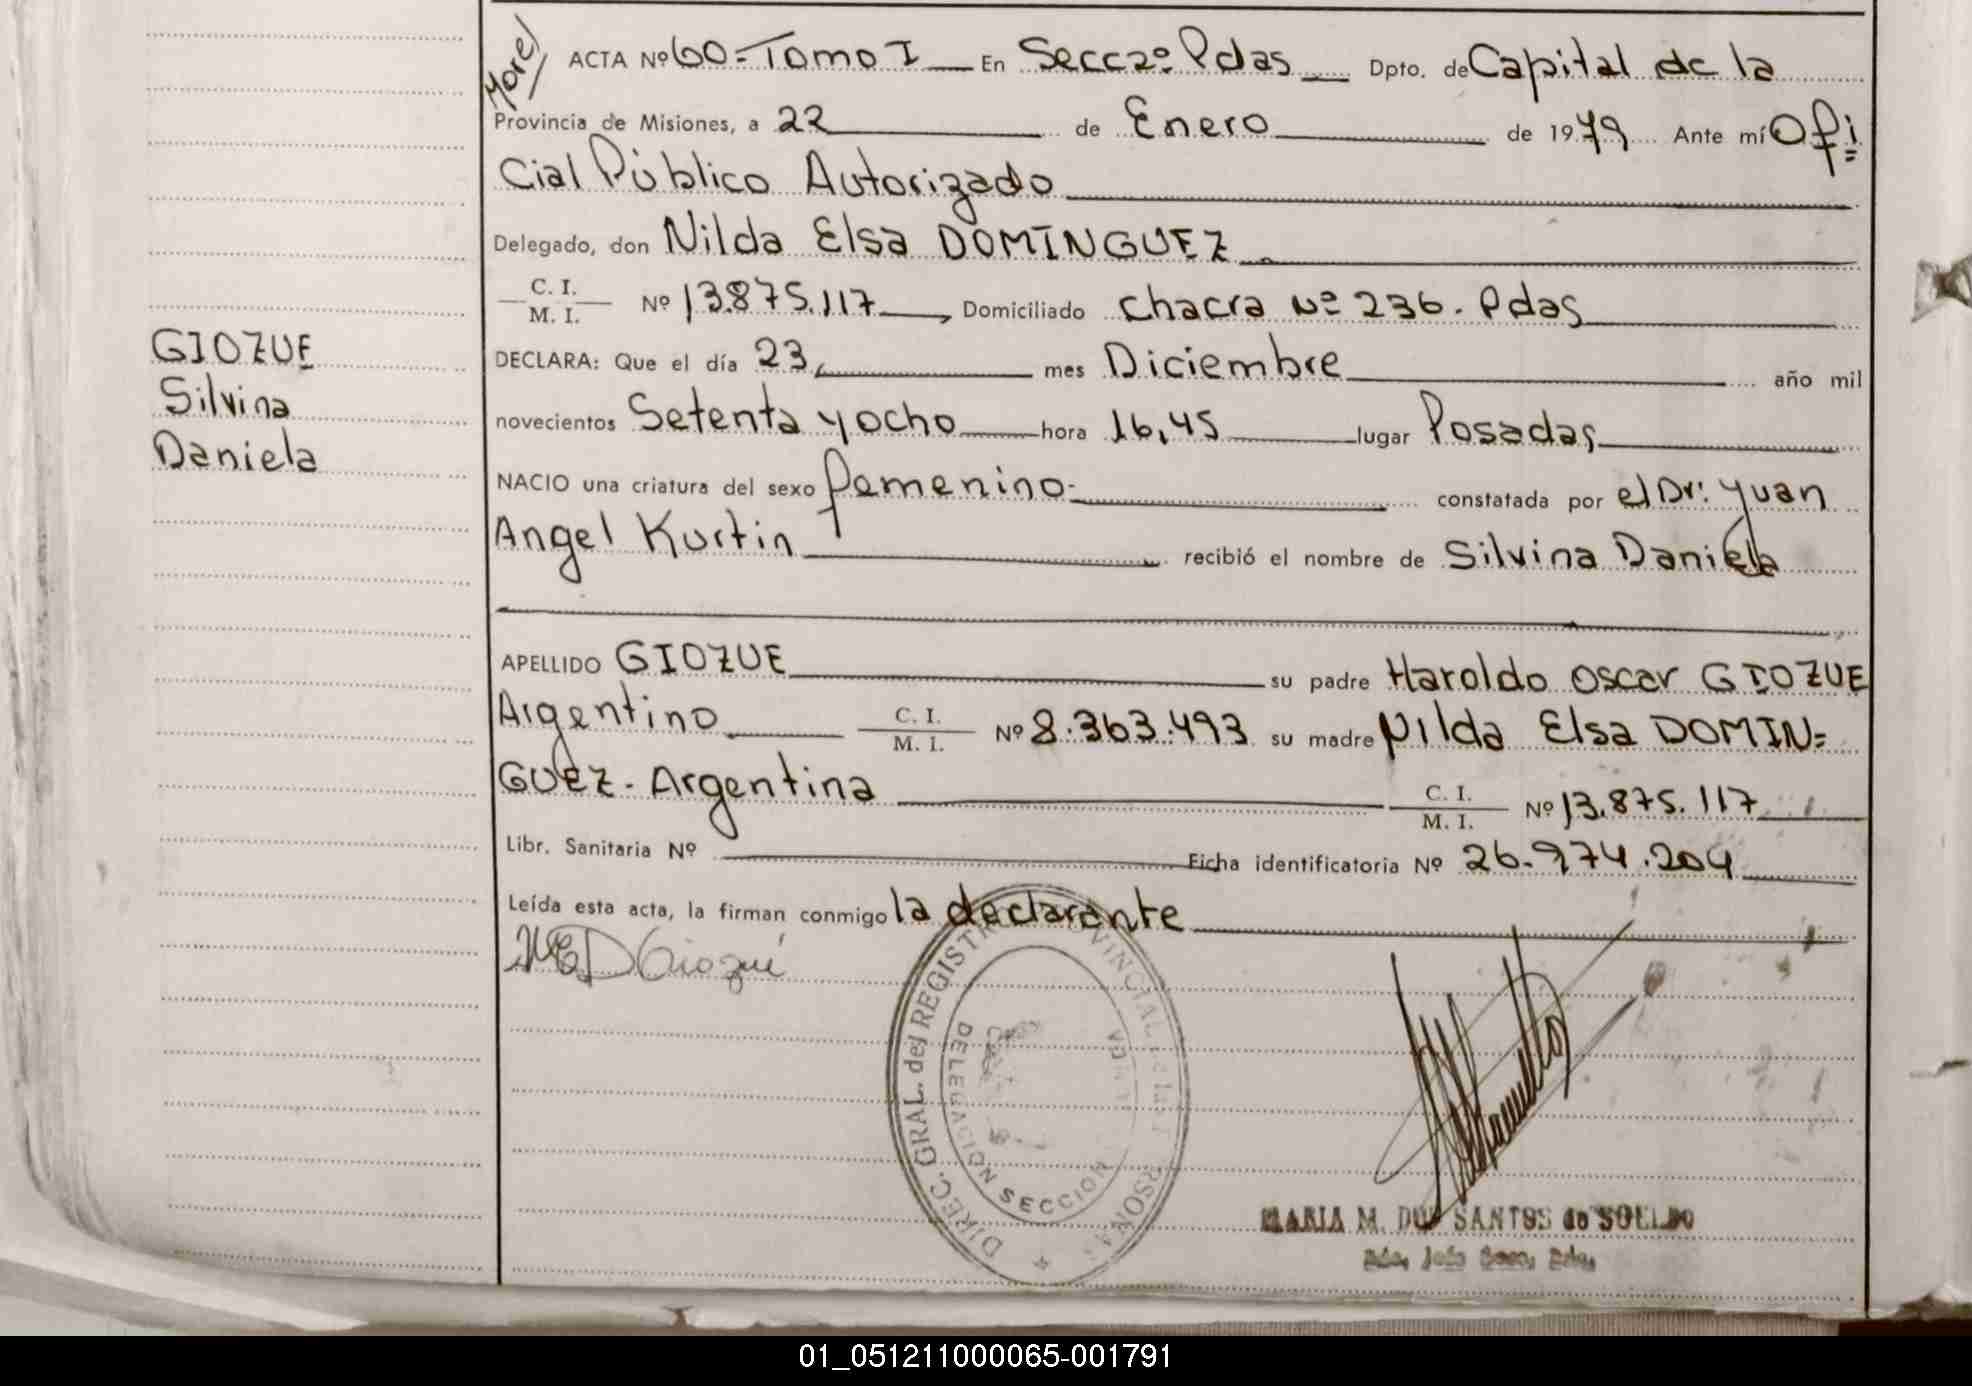 More
ACTA Nº 60-Tomo I En Secc 2º Pdas Dpto. de Capital de la
Provincia de Misiones, a 22 de Enero de 1979 Ante mí Ofi=
cial Público Autorizado
Delegado, don Nilda Elsa DOMINGUEZ
C. I.
M. I. Nº 13.875.117, Domiciliado Chacra Nº 236. Pdas
DECLARA: Que el día 23, mes Diciembre año mil
novecientos Setenta y ocho hora 16,45 lugar Posadas
GIOZUE
Silvina
Daniela
NACIO una criatura del sexo femenino- constatada por el Dr: Yuan
Angel Kurtin recibió el nombre de Silvina Daniela
APELLIDO GIOZUE su padre Haroldo Oscar GIOZUE
Argentino C. I. M. I. Nº 8.363.493 su madre Nilda Elsa DOMIN=
GUEZ- Argentina C. I. M. I. Nº 13.875.117
Libr. Sanitaria Nº Ficha identificatoria Nº 26.974.204
Leída esta acta, la firman conmigo la declarante
NED Giozué
DIREC. GRAL. del REGISTR
DELEGACION SECCION
MARIA M. DOS SANTOS de
01_051211000065-001791